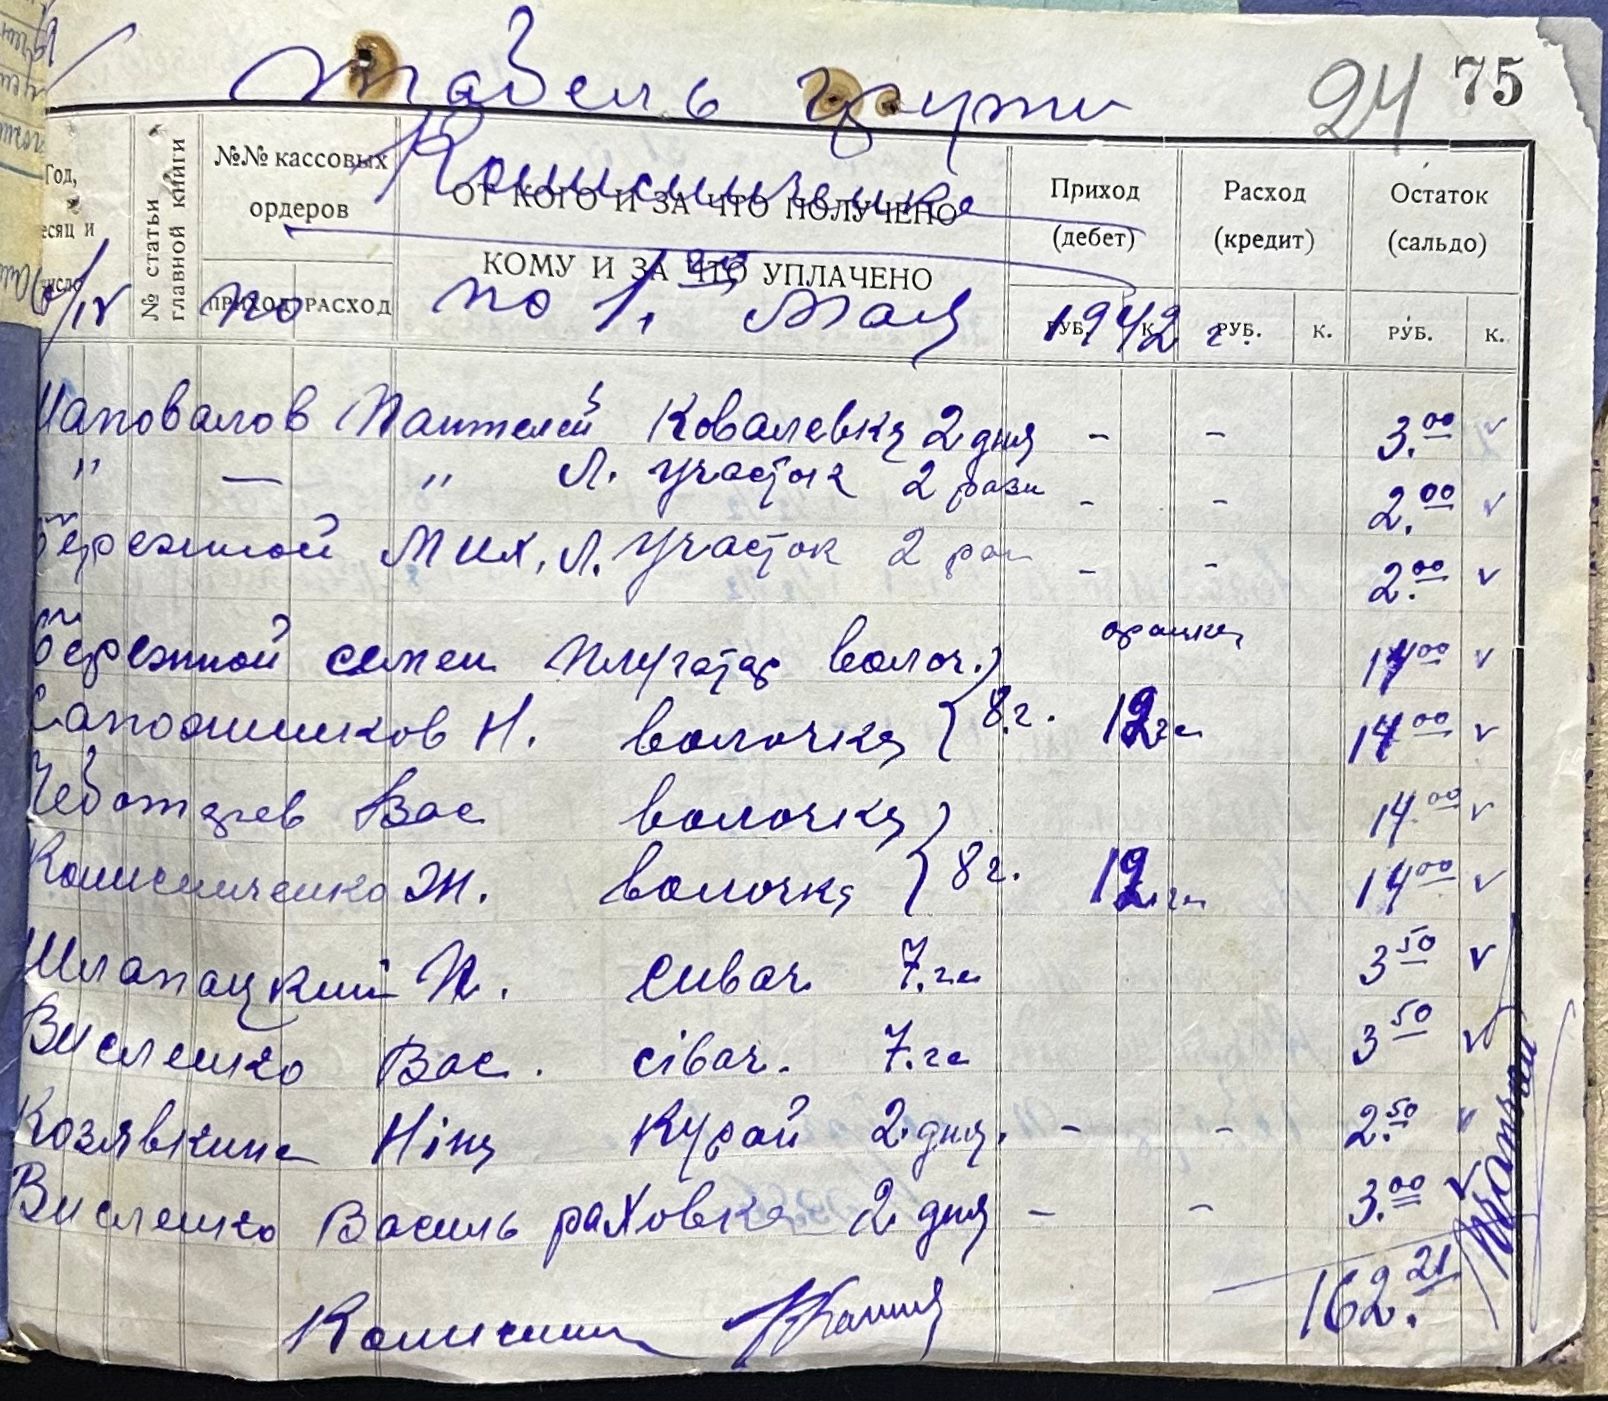 Табель групи
24 75
Комисниченка
Год, есяц и число
№ статьи главной книги
№№ кассовых ордеров
ПРИХОД РАСХОД
ОТ КОГО И ЗА ЧТО ПОЛУЧЕНО
КОМУ И ЗА ЧТО УПЛАЧЕНО
Приход (дебет)
РУБ. К.
Расход (кредит)
РУБ. К.
Остаток (сальдо)
РУБ. К.
/IV по по 1. Мая 1942 г.
Шаповалов Пантелей Ковалевка 2 дня - - 3.00 v
" — " Л. участок 2 рази - - 2.00 v
Бережной Мих. Л. участок 2 раз - - 2.00 v
Бережной семен плугатар волоч. оранка 14 00 v
Сапожников Н. волочка 8 г. 12 га 14 00 v
Чеботарев Вас волочка 14 00 v
Комисниченко Ж. волочка 8 г. 12 га 14 00 v
Шлапацкий П. сивач 7. га 3 50 v
Висленко Вас. сівач. 7. га 3 50 v
Козявкина Ніна Курай 2. дня. - - 2.50 v
Висленко Василь раховка 2 дня - - 3.00 v
162.21